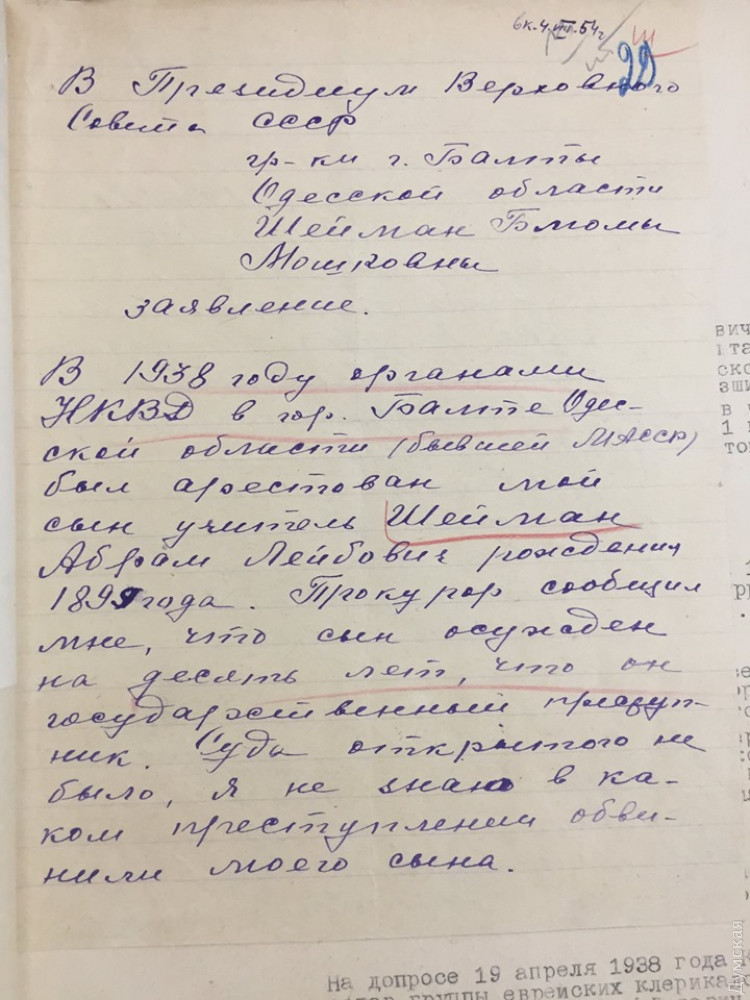 вк.4.III.54г
29
В Президиум Верховного
Совета СССР
гр-ки г. Балты
Одесской области
Шейман Блюмы
Мошковны
заявление.
В 1938 году органами
НКВД в гор. Балте Одес-
ской области (бывшей МАССР)
был арестован мой
сын учитель Шейман
Абрам Лейбович рождения
1899 года. Прокурор сообщил
мне, что сын осужден
на десять лет, что он
государственный преступ-
ник. Суда открытого не
было, я не знаю в ка-
ком преступлении обви-
нили моего сына.
вич
ско
зши
в
1
то
На допросе 19 апреля 1938 года
группы еврейских клерика
Думская